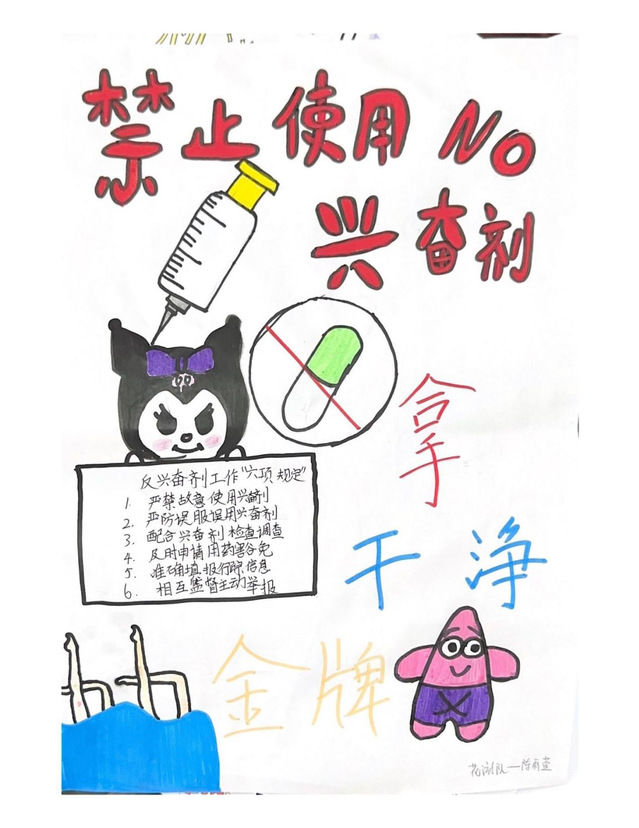 禁止使用 No
兴奋剂
拿
干净
金牌
反兴奋剂工作“六项规定”
1. 严禁故意使用兴奋剂
2. 严防误服误用兴奋剂
3. 配合兴奋剂检查调查
4. 及时申请用药豁免
5. 准确填报行踪信息
6. 相互监督主动举报